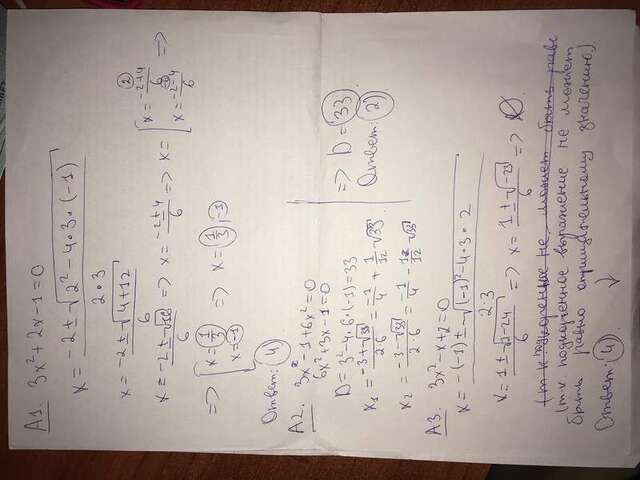 A1. 3x² + 2x - 1 = 0
x = (-2 ± √(2² - 4·3·(-1))) / (2·3)
x = (-2 ± √(4+12)) / 6
x = (-2 ± √16) / 6 => x = (-2 ± 4) / 6 => x = [ x = (-2+4)/6 x = (-2-4)/6 =>
=> [ x = 1/3 x = -1 => x = 1/3; -1
Ответ: 4
A2. 3x - 1 + 6x² = 0
6x² + 3x - 1 = 0
D = 3² - 4·6·(-1) = 33 => D = 33.
x₁ = (-3 + √33) / (2·6) = -1/4 + 1/12 √33 Ответ: 2
x₂ = (-3 - √33) / (2·6) = -1/4 - 1/12 √33
A3. 3x² - x + 2 = 0
x = (-(-1) ± √((-1)² - 4·3·2)) / (2·3)
x = (1 ± √(1-24)) / 6 => x = (1 ± √(-23)) / 6 => ∅.
(т.к. подкоренное не может быть равно
(т.к. подкоренное выражение не может
быть равно отрицательному значению.)
Ответ: 4 ↓